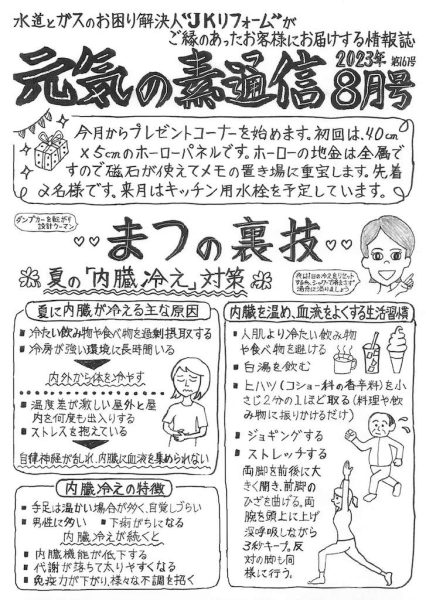 水道とガスのお困り解決人"JKリフォーム"が
ご縁のあったお客様にお届けする情報誌
元気の素通信
2023年 第161号
8月号
今月からプレゼントコーナーを始めます。初回は、40cm
×5cmのホーローパネルです。ホーローの地金は金属で
すので磁石が使えてメモの置き場に重宝します。先着
2名様です。来月はキッチン用水栓を予定しています。
ダンプカーを転がす
設計ウーマン
まつの裏技
夏の「内臓冷え」対策
夏に内臓が冷える主な原因
冷たい飲み物や食べ物を過剰摂取する
冷房が強い環境に長時間いる
内外から体を冷やす
温度差が激しい屋外と屋
内を何度も出入りする
ストレスを抱えている
自律神経が乱れ、内臓に血液を集められない
内臓冷えの特徴
手足は温かい場合が多く、自覚しづらい
男性に多い
下痢がちになる
内臓冷えが続くと
内臓機能が低下する
代謝が落ちて太りやすくなる
免疫力が下がり、様々な不調を招く
内臓を温め、血流をよくする生活習慣
人肌より冷たい飲み物
や食べ物を避ける
白湯を飲む
ヒハツ(コショー科の香辛料)を小
さじ2分の1ほど取る(料理や飲
み物に振りかけるだけ)
ジョギングする
ストレッチする
両脚を前後に大
きく開き、前脚の
ひざを曲げる。両
腕を頭上に上げ
深呼吸しながら
3秒キープ。反
対の脚も同
様に行う。